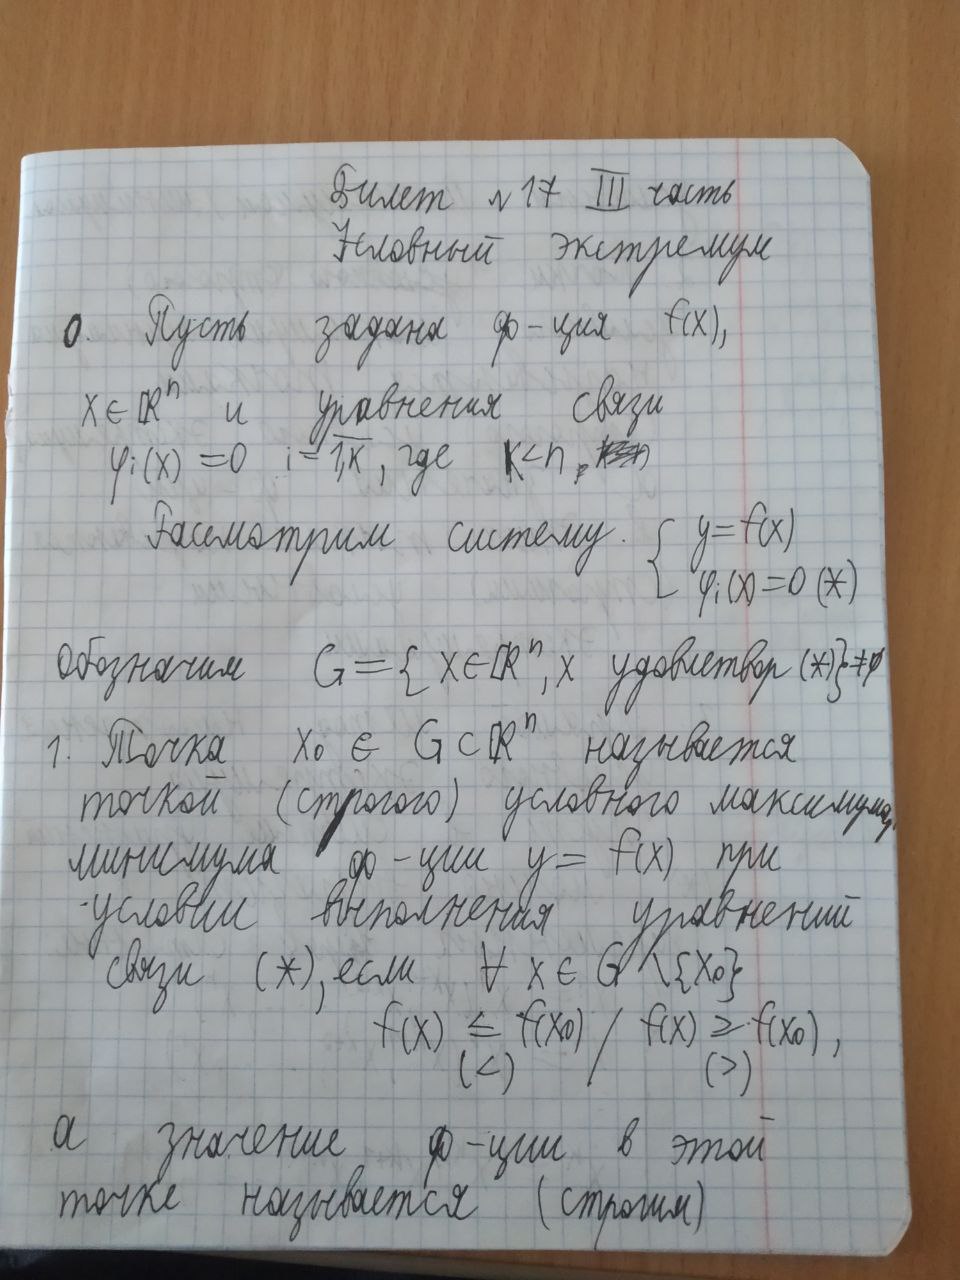 Билет №17 III часть
Условный экстремум
0. Пусть задана ф-ция f(x),
x∈ℝⁿ и уравнения связи
φᵢ(x)=0 i=1,k, где k<n,
Рассмотрим систему. { y=f(x)
φᵢ(x)=0 (*)
Обозначим G={x∈ℝⁿ, x удовлетвор (*)}≠∅
1. Точка x₀ ∈ G⊂ℝⁿ называется
точкой (строгого) условного максимума,
минимума ф-ции y=f(x) при
условии выполнения уравнений
связи (*), если ∀ x∈G\{x₀}
f(x) ≤ f(x₀) / f(x) ≥ f(x₀),
(<) (>)
а значение ф-ции в этой
точке называется (строгим)